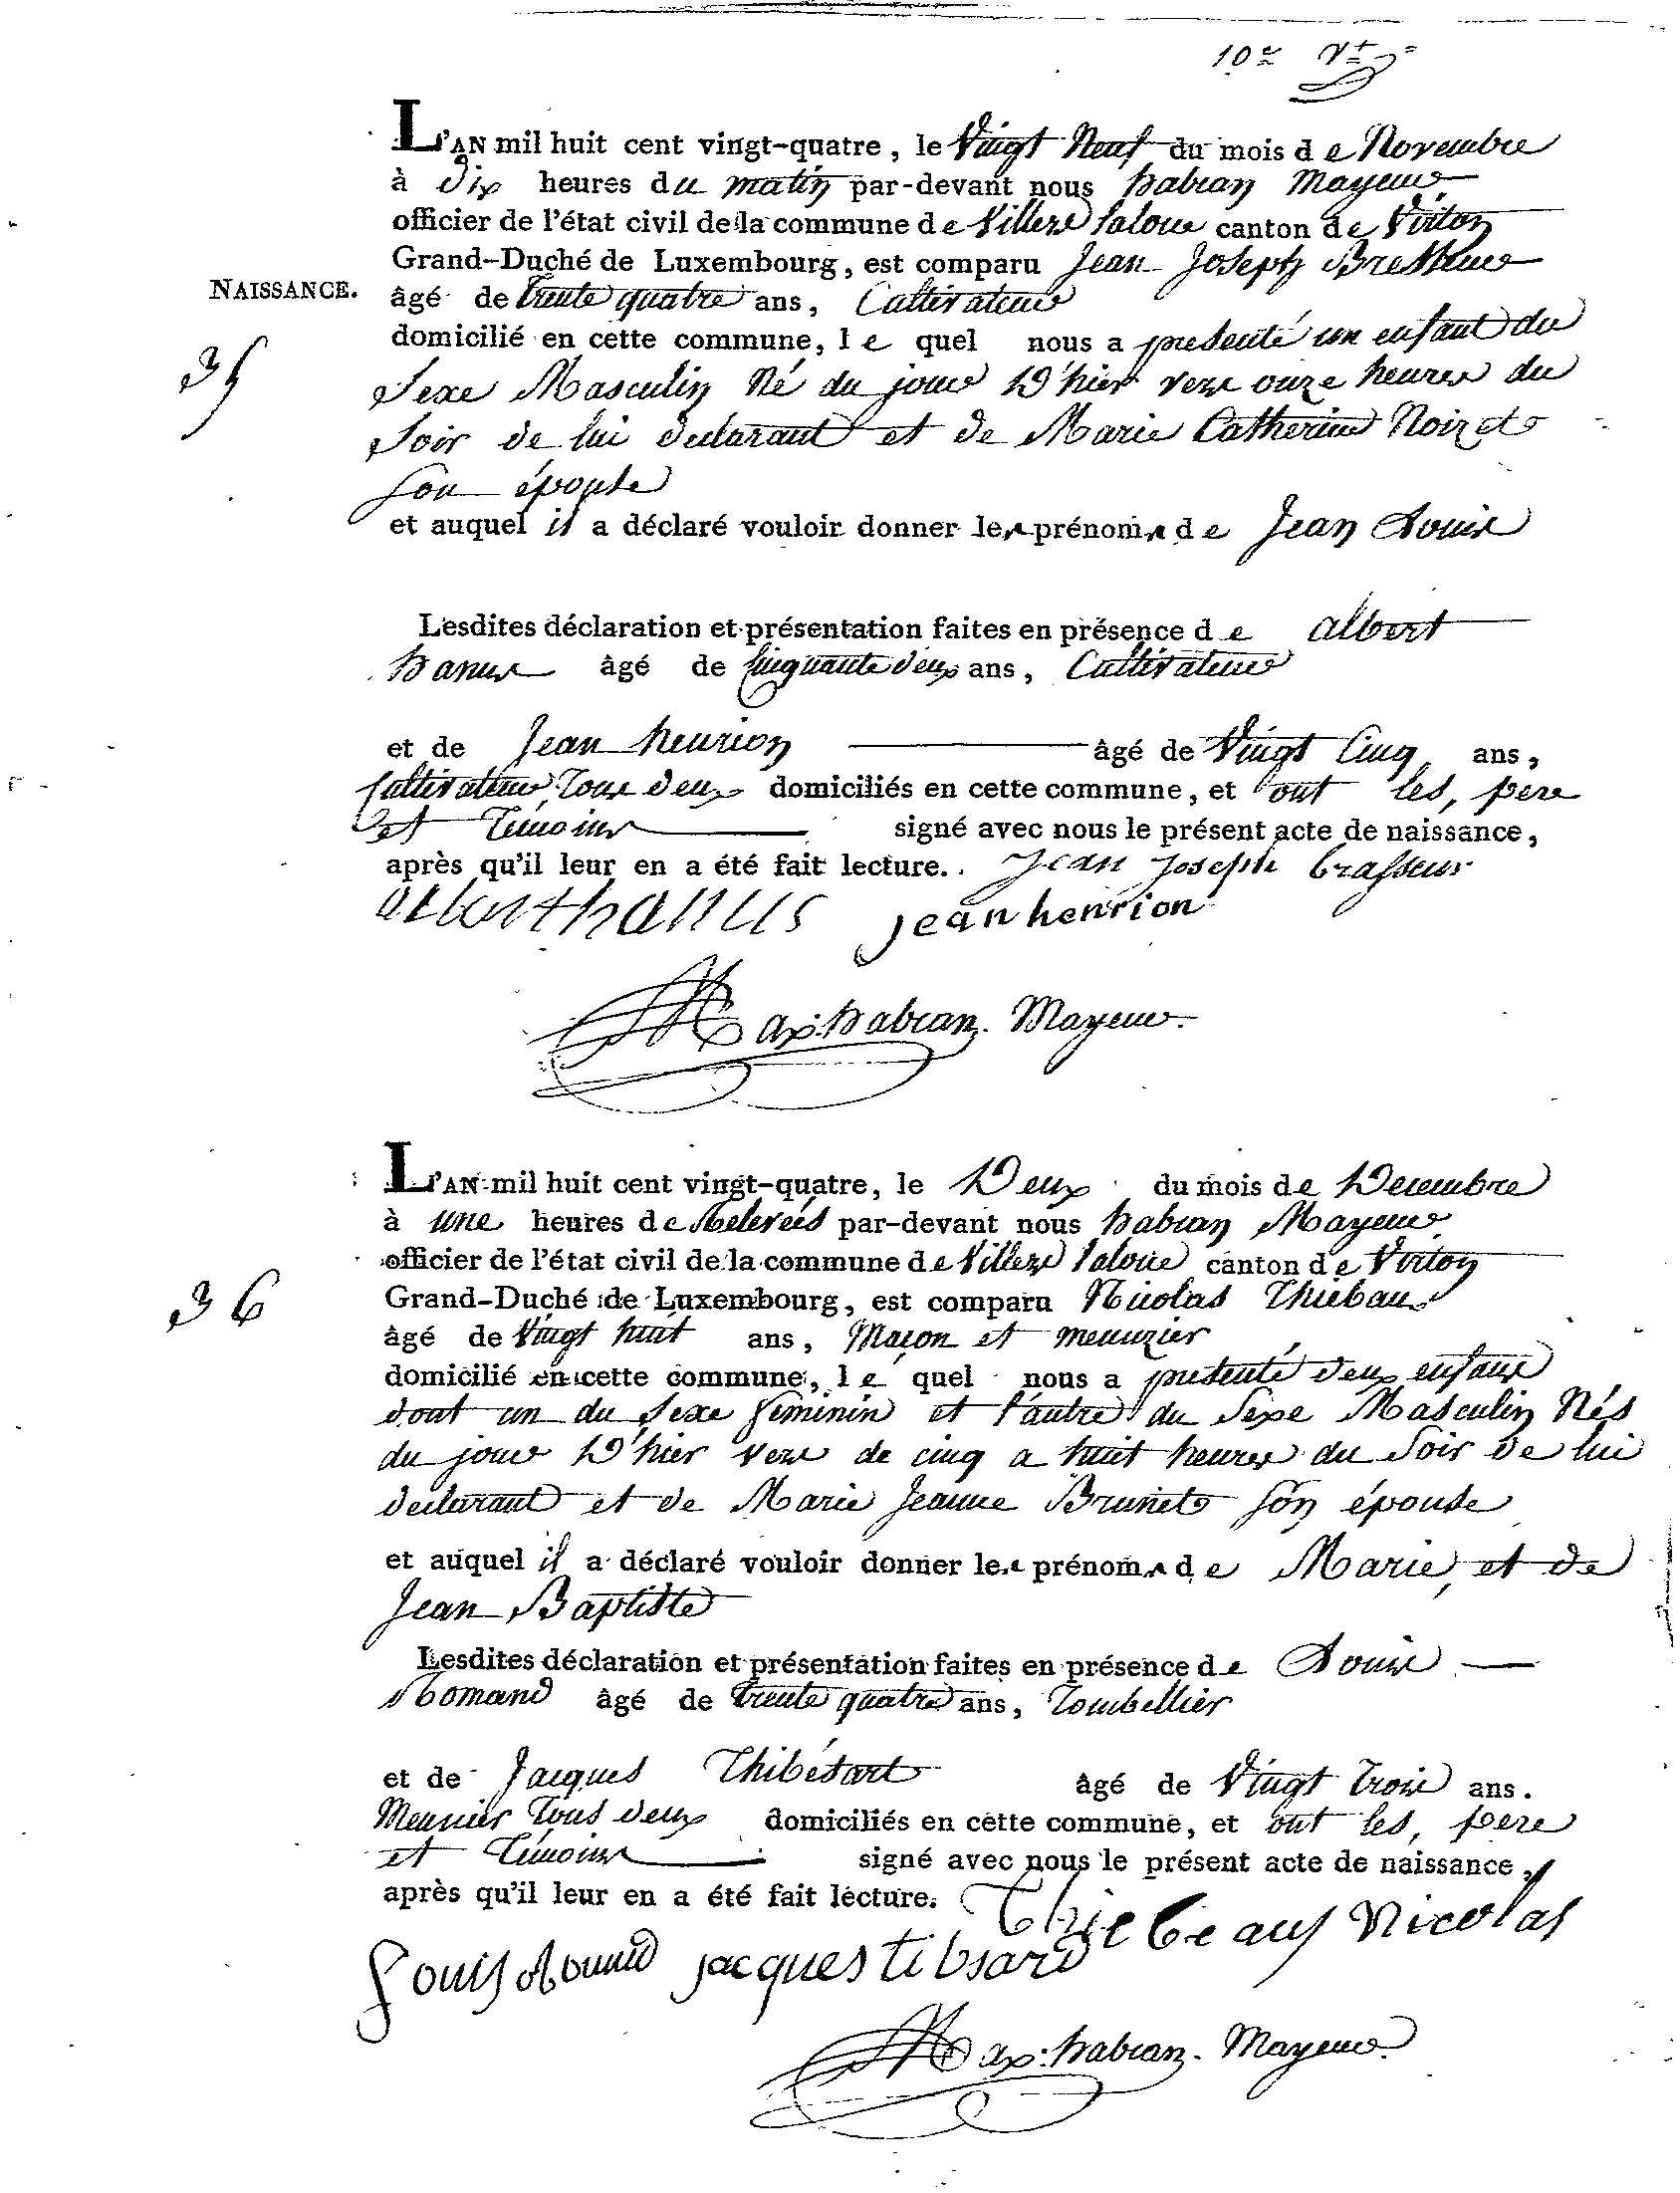 10e Vt
L'AN mil huit cent vingt-quatre, le Vingt Neuf du mois de Novembre
à Dix heures du matin par-devant nous habran Mayeur
officier de l'état civil de la commune de Villers Laloue canton de Virton
Grand-Duché de Luxembourg, est comparu Jean Joseph
NAISSANCE. âgé de trente quatre ans, Cultivateur
35
domicilié en cette commune, le quel nous a presenté un enfant du
Sexe Masculin Né du jour D'hier vers onze heures du
Soir de lui declarant et de Marie Catherine Noizet
Son épouse
et auquel il a déclaré vouloir donner les prénoms de Jean Louis
Lesdites déclaration et présentation faites en présence de albert
hanus âgé de Cinquante deux ans, Cultivateur
et de Jean henrion âgé de Vingt Cinq ans,
Cultivateur Tous deux domiciliés en cette commune, et ont les, pere
et Témoins signé avec nous le présent acte de naissance,
après qu'il leur en a été fait lecture. Jean Joseph brasseur
albert hanus jean henrion
Max: habran. Mayeur.
L'AN mil huit cent vingt-quatre, le Deux du mois de Decembre
à une heures de Relevées par-devant nous habran Mayeur
officier de l'état civil de la commune de Villers Laloue canton de Virton
36
Grand-Duché de Luxembourg, est comparu Nicolas Thiebau
âgé de Vingt huit ans, Maçon et menuzier
domicilié en cette commune, le quel nous a presenté deux enfans
dont un du Sexe feminin et l'autre du Sexe Masculin Nés
du jour D'hier vers de cinq a huit heures du Soir de lui
declarant et de Marie Jeanne Brunet Son épouse
et auquel il a déclaré vouloir donner les prénoms de Marie, et de
Jean Baptiste
Lesdites déclaration et présentation faites en présence de Louis
âgé de trente quatre ans, Tombellier
et de Jacques Thibésart âgé de Vingt Trois ans.
Meunier Tous deux domiciliés en cette commune, et ont les, pere
et Témoins signé avec nous le présent acte de naissance,
après qu'il leur en a été fait lecture. Thiebeaux Nicolas
Louis jacques tibsard
Max: habran. Mayeur.